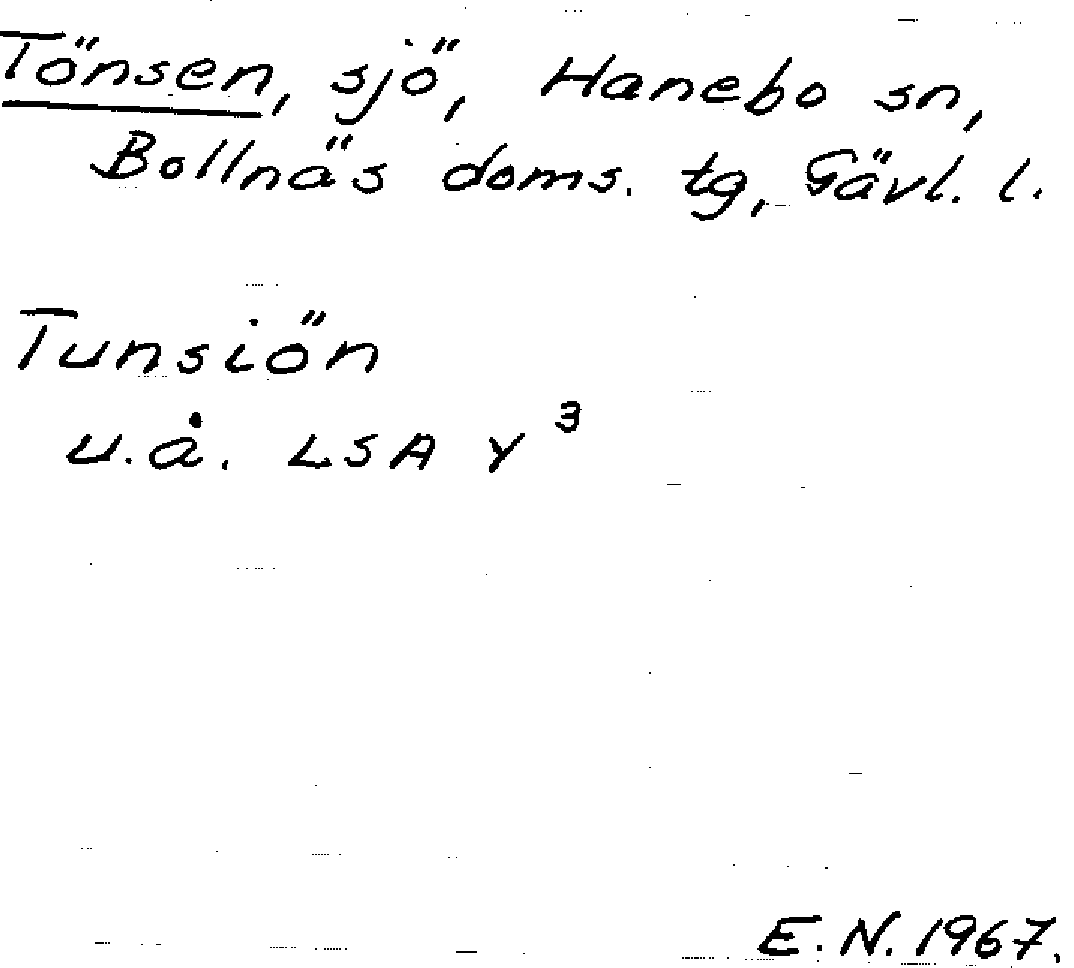 Tönsen, sjö, Hanebo sn,
Bollnäs doms. tg, Gävl. l.
Tunsiön
u.å. LSA Y³
E.N. 1967.